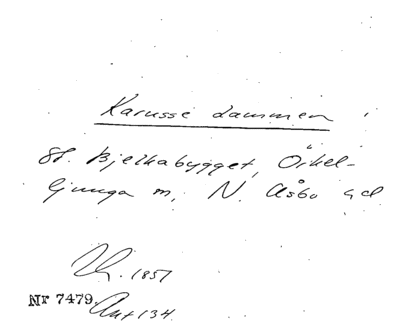 Karusse dammen
St. Bjelkabygget, Örkel-
ljunga sn, N. Åsbo hd
1851
Nr 7479.
Ant 134